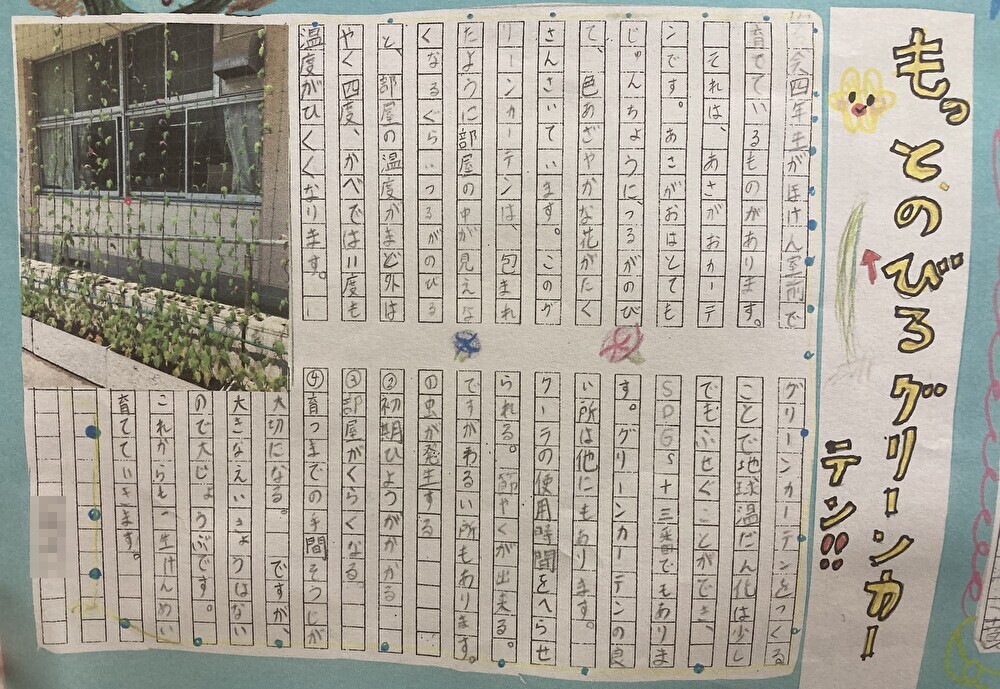 もっとのびるグリーンカー
テン!!
今四年生がほけん室前で
育てているものがあります。
それは、あさがおカーテ
ンです。あさがおはとても
じゅんちょうに、つるがのび
て、色あざやかな花がたく
さんさいています。このグ
リーンカーテンは、包まれ
たように部屋の中が見えな
くなるぐらいつるがのびる
と、部屋の温度がまど外は
やく四度、かべでは11度も
温度がひくくなります。
グリーンカーテンをつくる
ことで地球温だん化は少し
でもふせぐことができ、
SDGs十三番でもありま
す。グリーンカーテンの良
い所は他にもあります。
クーラの使用時間をへらせ
られる。節やくが出来る。
ですがわるい所もあります。
①虫が発生する
②初期ひようがかかる
③部屋がくらくなる
④育つまでの手間そうじが
大切になる。ですが、
大きなえいきょうはない
ので大じょうぶです。
これからも一生けんめい
育てていきます。